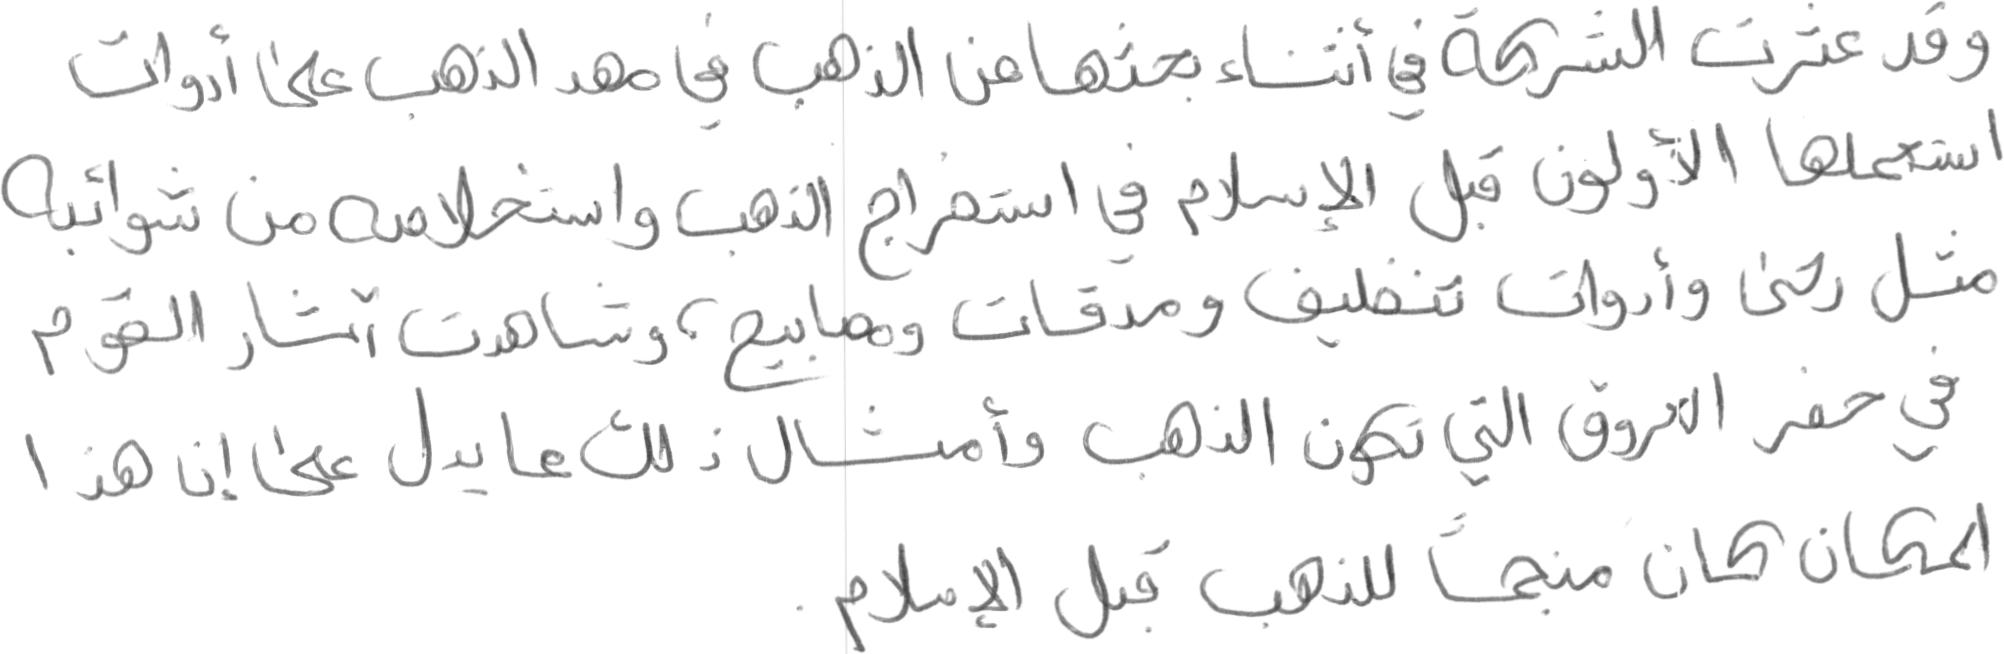 وقد عثرت الشركة في أثناء بحثها عن الذهب في مهد الذهب على أدوات
استعملها الأولون قبل الإسلام في استخراج الذهب واستخلاصه من شوائبه
مثل رحى وأدوات تنظيف ومدقات ومصابيح، وشاهدت آثار القوم
في حفر العروق التي تكون الذهب وأمثال ذلك مما يدل على إن هذا
المكان كان منجماً للذهب قبل الإسلام.